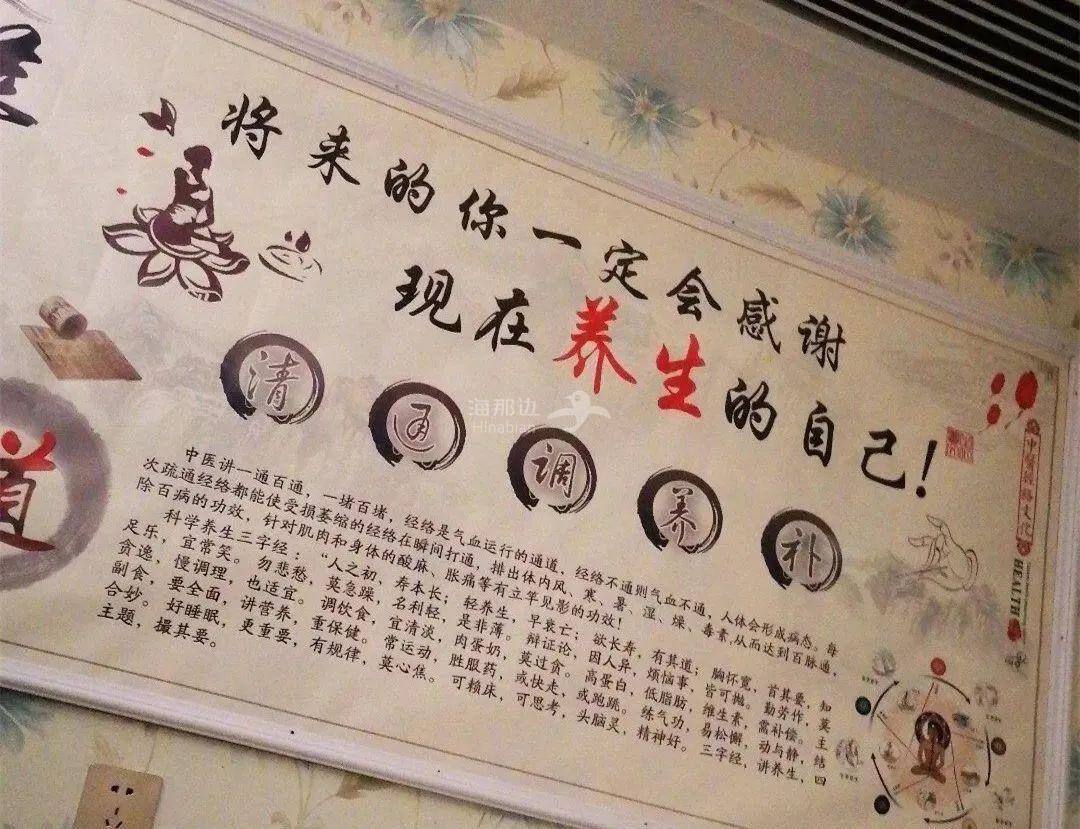 将来的你一定会感谢
现在养生的自己！
清 通 调 养 补
道
中医讲一通百通，一堵百堵，经络是气血运行的通道，经络不通则气血不通，人体会形成病态。每
次疏通经络都能使受损萎缩的经络在瞬间打通，排出体内风、寒、暑、湿、燥、毒素,从而达到百脉通，
除百病的功效，针对肌肉和身体的酸麻、胀痛等有立竿见影的功效！
科学养生三字经：“人之初，寿本长；轻养生，早衰亡；欲长寿，有其道；胸怀宽，首其要，知
足乐，宜常笑。勿悲愁，莫急躁，名利轻，是非薄。辩证论，因人异，烦恼事，皆可抛。勤劳作，莫
贪逸，慢调理，也适宜。调饮食，宜清淡，肉蛋奶，莫过贪。高蛋白，低脂肪，维生素，需补偿。主
副食，要全面，讲营养，重保健。常运动，胜服药，或快走，或跑跳。练气功，易松懈，动与静，结
合妙。好睡眠，更重要，有规律，莫心焦。可赖床，可思考，头脑灵，精神好。三字经，讲养生，四
主题，撮其要。
中医经络文化
HEALTH
海那边
Hinabian